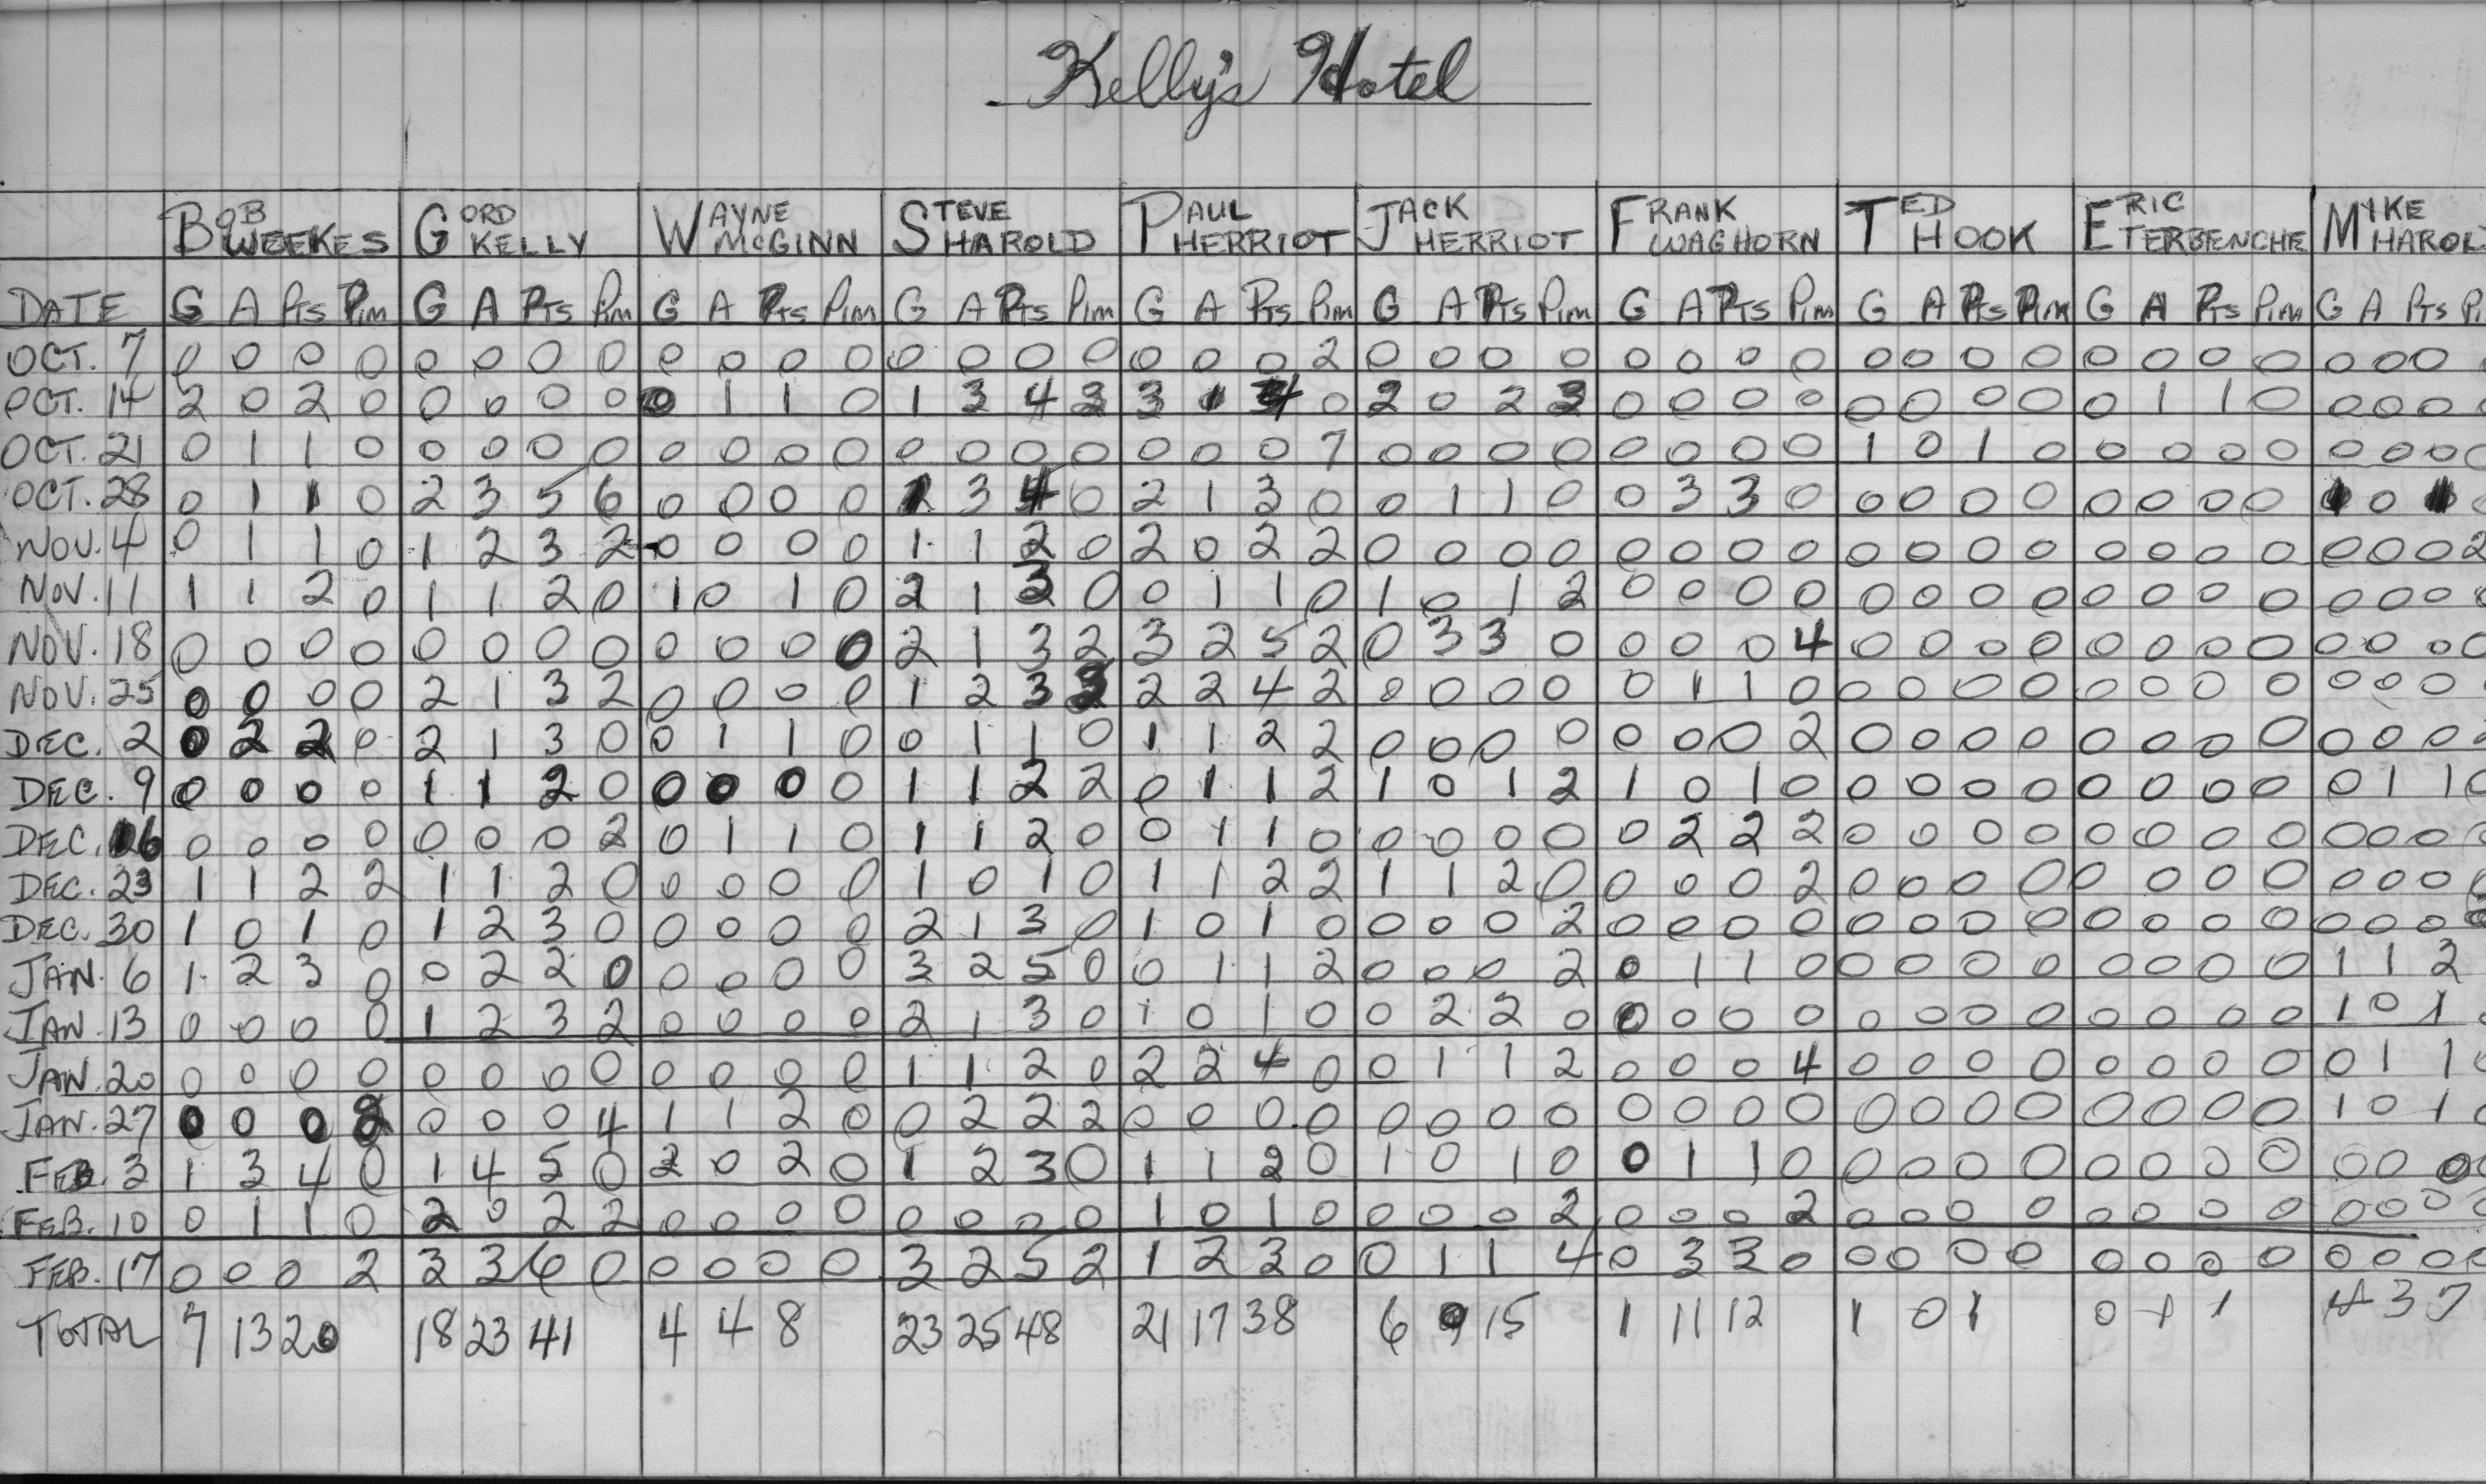 Kelly's Hotel
BOB WEEKES GORD KELLY WAYNE McGINN STEVE HAROLD PAUL HERRIOT JACK HERRIOT FRANK WAGHORN TED HOOK ERIC TERBENCHE MYKE HAROL
DATE G A Pts Pim G A Pts Pim G A Pts Pim G A Pts Pim G A Pts Pim G A Pts Pim G A Pts Pim G A Pts Pim G A Pts Pim G A Pts
OCT. 7 0 0 0 0 0 0 0 0 0 0 0 0 0 0 0 0 0 0 0 2 0 0 0 0 0 0 0 0 0 0 0 0 0 0 0 0 0 0 0
OCT. 14 2 0 2 0 0 0 0 0 0 1 1 0 1 3 4 3 3 1 4 0 2 0 2 0 0 0 0 0 0 0 0 0 1 1 0 0 0 0
OCT. 21 0 1 1 0 0 0 0 0 0 0 0 0 0 0 0 0 0 0 0 7 0 0 0 0 0 0 0 0 1 0 1 0 0 0 0 0 0 0 0 0
OCT. 28 0 1 1 0 2 3 5 6 0 0 0 0 1 3 4 0 2 1 3 0 0 1 1 0 0 3 3 0 0 0 0 0 0 0 0 0 1 0 1 0
NOV. 4 0 1 1 0 1 2 3 2 0 0 0 0 1 1 2 0 2 0 2 2 0 0 0 0 0 0 0 0 0 0 0 0 0 0 0 0 0 0 0 2
NOV. 11 1 1 2 0 1 1 2 0 1 0 1 0 2 1 3 0 0 1 1 0 1 0 1 2 0 0 0 0 0 0 0 0 0 0 0 0 0 0 0
NOV. 18 0 0 0 0 0 0 0 0 0 0 0 0 2 1 3 2 3 2 5 2 0 3 3 0 0 0 0 4 0 0 0 0 0 0 0 0 0 0 0 0
NOV. 25 0 0 0 0 2 1 3 2 0 0 0 0 1 2 3 2 2 4 2 0 0 0 0 0 1 1 0 0 0 0 0 0 0 0 0 0 0 0
DEC. 2 0 2 2 0 2 1 3 0 0 1 1 0 0 1 1 0 1 1 2 2 0 0 0 0 0 0 0 2 0 0 0 0 0 0 0 0 0 0 0
DEC. 9 0 0 0 0 1 1 2 0 0 0 0 0 1 1 2 2 0 1 1 2 1 0 1 2 1 0 1 0 0 0 0 0 0 0 0 0 0 1 1 0
DEC. 16 0 0 0 0 0 0 0 2 0 1 1 0 1 1 2 0 0 1 1 0 0 0 0 0 0 2 2 2 0 0 0 0 0 0 0 0 0 0 0
DEC. 23 1 1 2 2 1 1 2 0 0 0 0 0 1 0 1 0 1 1 2 2 1 1 2 0 0 0 0 2 0 0 0 0 0 0 0 0 0 0 0
DEC. 30 1 0 1 0 1 2 3 0 0 0 0 0 2 1 3 0 1 0 1 0 0 0 0 2 0 0 0 0 0 0 0 0 0 0 0 0 0 0 0
JAN. 6 1 2 3 0 0 2 2 0 0 0 0 0 3 2 5 0 0 1 1 2 0 0 0 2 0 1 1 0 0 0 0 0 0 0 0 0 1 1 2
JAN. 13 0 0 0 0 1 2 3 2 0 0 0 0 2 1 3 0 1 0 1 0 0 2 2 0 0 0 0 0 0 0 0 0 0 0 0 0 1 0 1
JAN. 20 0 0 0 0 0 0 0 0 0 0 0 0 1 1 2 0 2 2 4 0 0 1 1 2 0 0 0 4 0 0 0 0 0 0 0 0 0 1 1
JAN. 27 0 0 0 2 0 0 0 4 1 1 2 0 0 2 2 2 0 0 0 0 0 0 0 0 0 0 0 0 0 0 0 0 0 0 0 0 1 0 1
FEB. 3 1 3 4 0 1 4 5 0 2 0 2 0 1 2 3 0 1 1 2 0 1 0 1 0 0 1 1 0 0 0 0 0 0 0 0 0 0 0 0
FEB. 10 0 1 1 0 2 0 2 2 0 0 0 0 0 0 0 0 1 0 1 0 0 0 0 2 0 0 0 2 0 0 0 0 0 0 0 0 0 0 0
FEB. 17 0 0 0 2 3 3 6 0 0 0 0 0 3 2 5 2 1 2 3 0 0 1 1 4 0 3 3 0 0 0 0 0 0 0 0 0 0 0 0
TOTAL 7 13 20 18 23 41 4 4 8 23 25 48 21 17 38 6 9 15 1 11 12 1 0 1 0 1 1 4 3 7